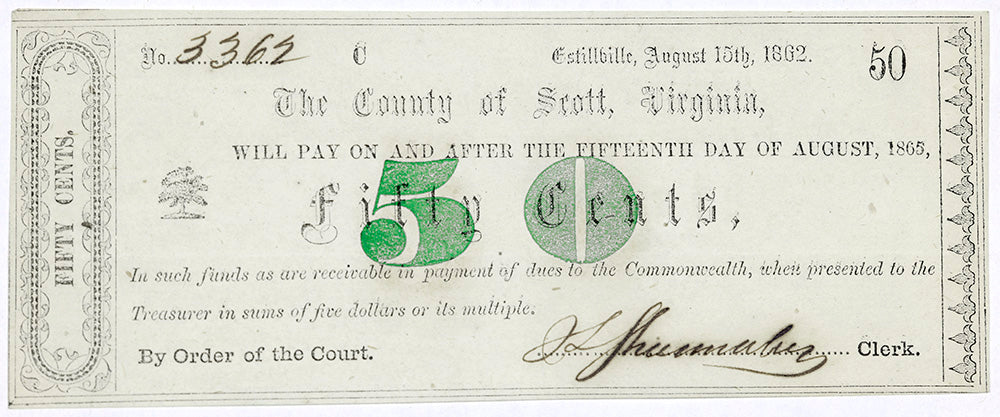 No. 3362 C Estillville, August 15th, 1862. 50
The County of Scott, Virginia,
WILL PAY ON AND AFTER THE FIFTEENTH DAY OF AUGUST, 1865,
Fifty Cents,
50
In such funds as are receivable in payment of dues to the Commonwealth, when presented to the
Treasurer in sums of five dollars or its multiple.
By Order of the Court. Shumaker Clerk.
FIFTY CENTS.